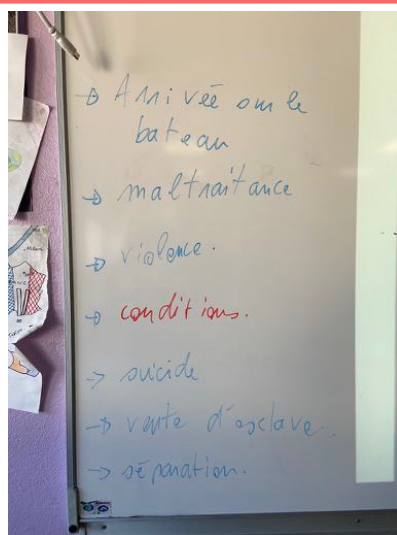 → Arrivée sur le
bateau
→ maltraitance
→ violence.
→ conditions.
→ suicide
→ vente d'esclave.
→ séparation.